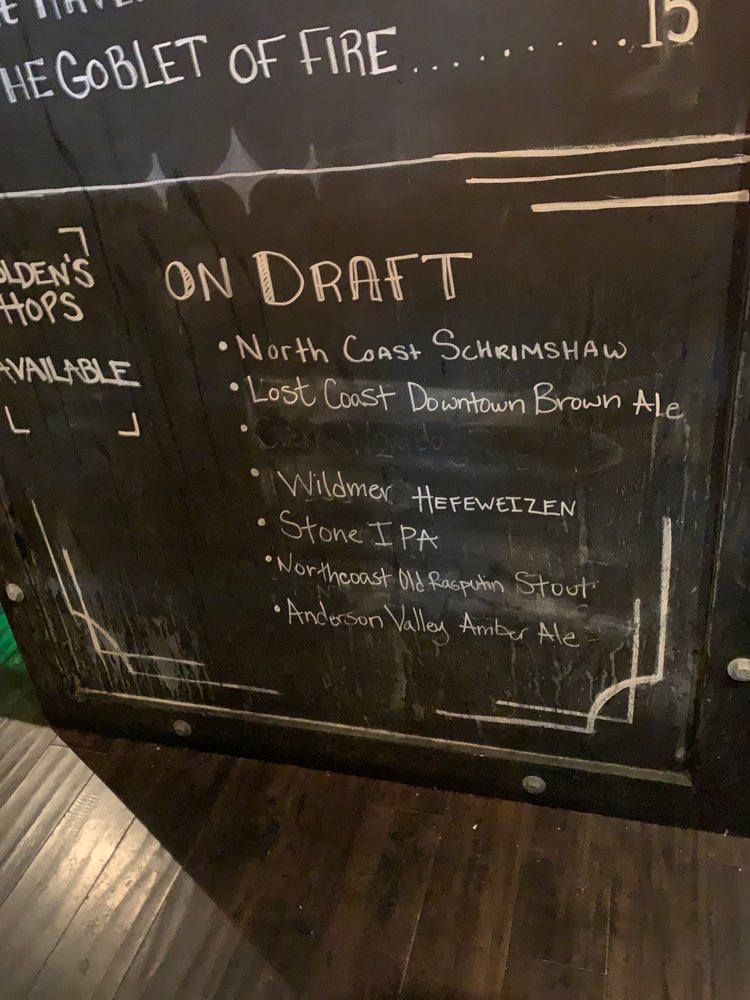 THE GOBLET OF FIRE..........15
OLDEN'S
HOPS
AVAILABLE
ON DRAFT
• North Coast SCHRIMSHAW
• Lost Coast Downtown Brown Ale
•
• Wildmer HEFEWEIZEN
• Stone IPA
• Northcoast Old Rasputin Stout
• Anderson Valley Amber Ale